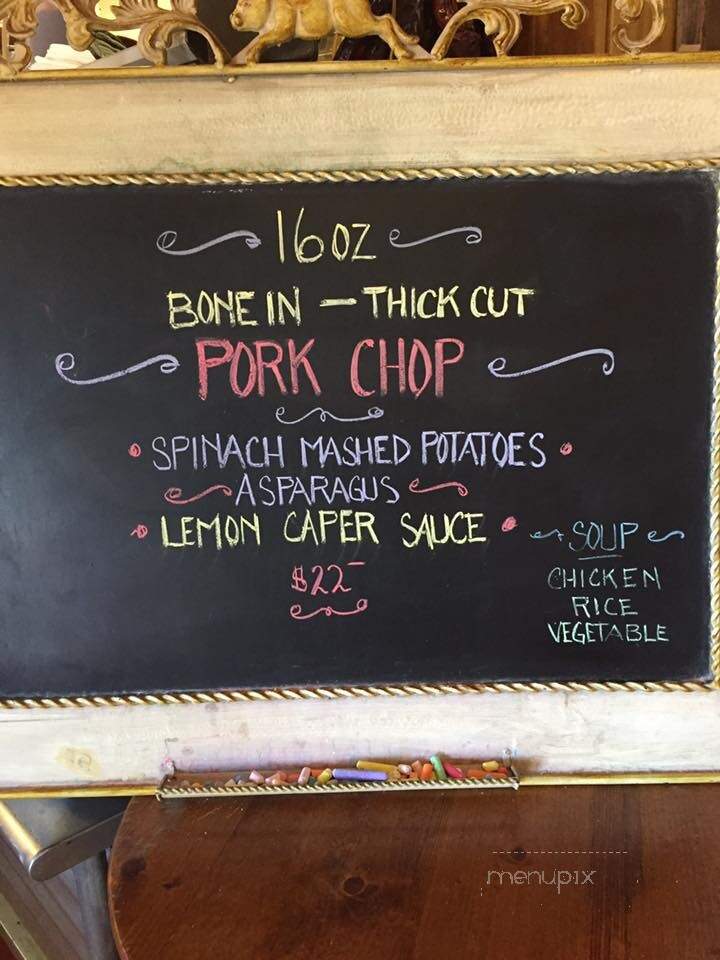 16 OZ
BONE IN - THICK CUT
PORK CHOP
• SPINACH MASHED POTATOES •
ASPARAGUS
• LEMON CAPER SAUCE •
$22-
SOUP
CHICKEN
RICE
VEGETABLE
menupix